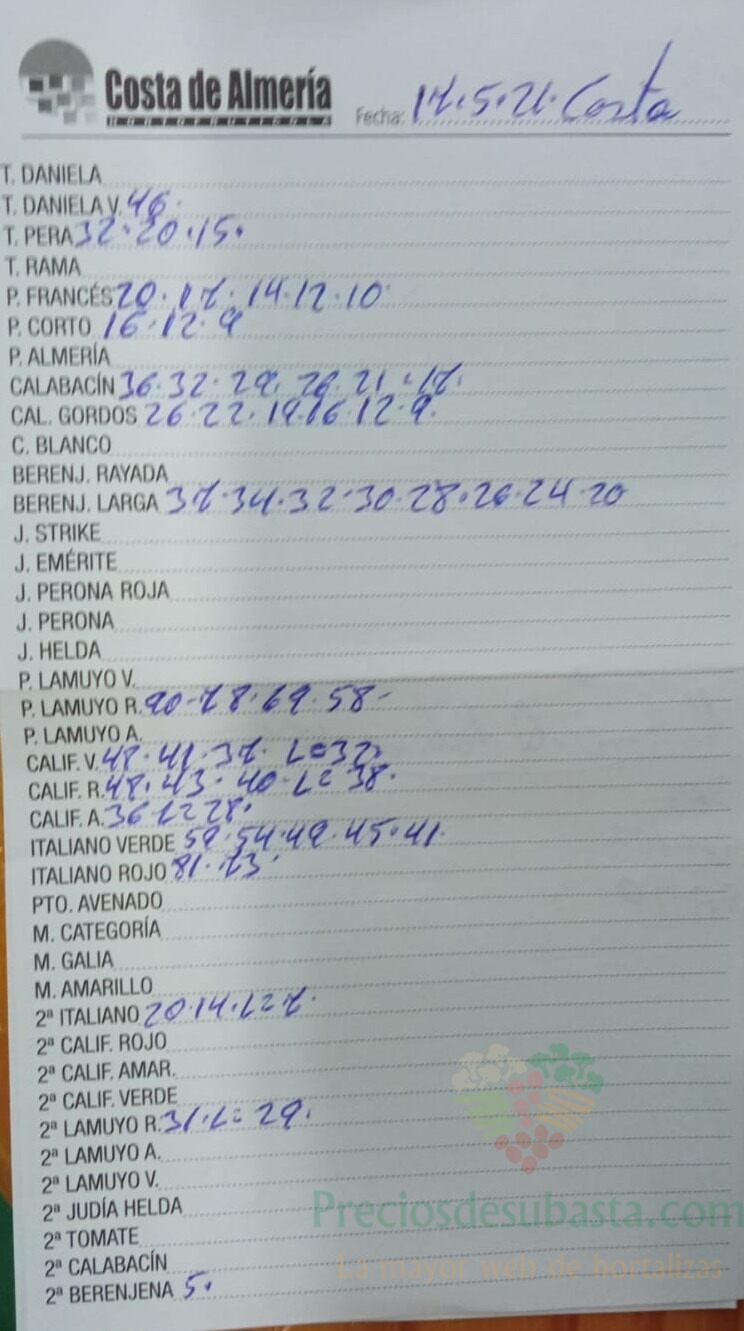 Costa de Almería
HORTOFRUTÍCOLA
Fecha: 17.5.21. Costa
T. DANIELA
T. DANIELA V. 46.
T. PERA 32.20.15.
T. RAMA
P. FRANCÉS 20.17.14.12.10
P. CORTO 16.12.9
P. ALMERÍA
CALABACÍN 36.32.29. 26.21.17.
CAL. GORDOS 26.22.19.16.12.9.
C. BLANCO
BERENJ. RAYADA
BERENJ. LARGA 37.34.32.30.28.26.24.20
J. STRIKE
J. EMÉRITE
J. PERONA ROJA
J. PERONA
J. HELDA
P. LAMUYO V.
P. LAMUYO R. 90-78.69.58-
P. LAMUYO A.
CALIF. V. 41.37. L=32
CALIF. R. 43.40-L=38.
CALIF. A. 36 L=28.
ITALIANO VERDE 59.54.49.45.41.
ITALIANO ROJO 81.73.
PTO. AVENADO
M. CATEGORÍA
M. GALIA
M. AMARILLO
2ª ITALIANO 20.14.L=7.
2ª CALIF. ROJO
2ª CALIF. AMAR.
2ª CALIF. VERDE
2ª LAMUYO R. 31.L=29.
2ª LAMUYO A.
2ª LAMUYO V.
2ª JUDÍA HELDA
2ª TOMATE
2ª CALABACÍN
2ª BERENJENA 5.
Preciosdesubasta.com
La mayor web de hortalizas